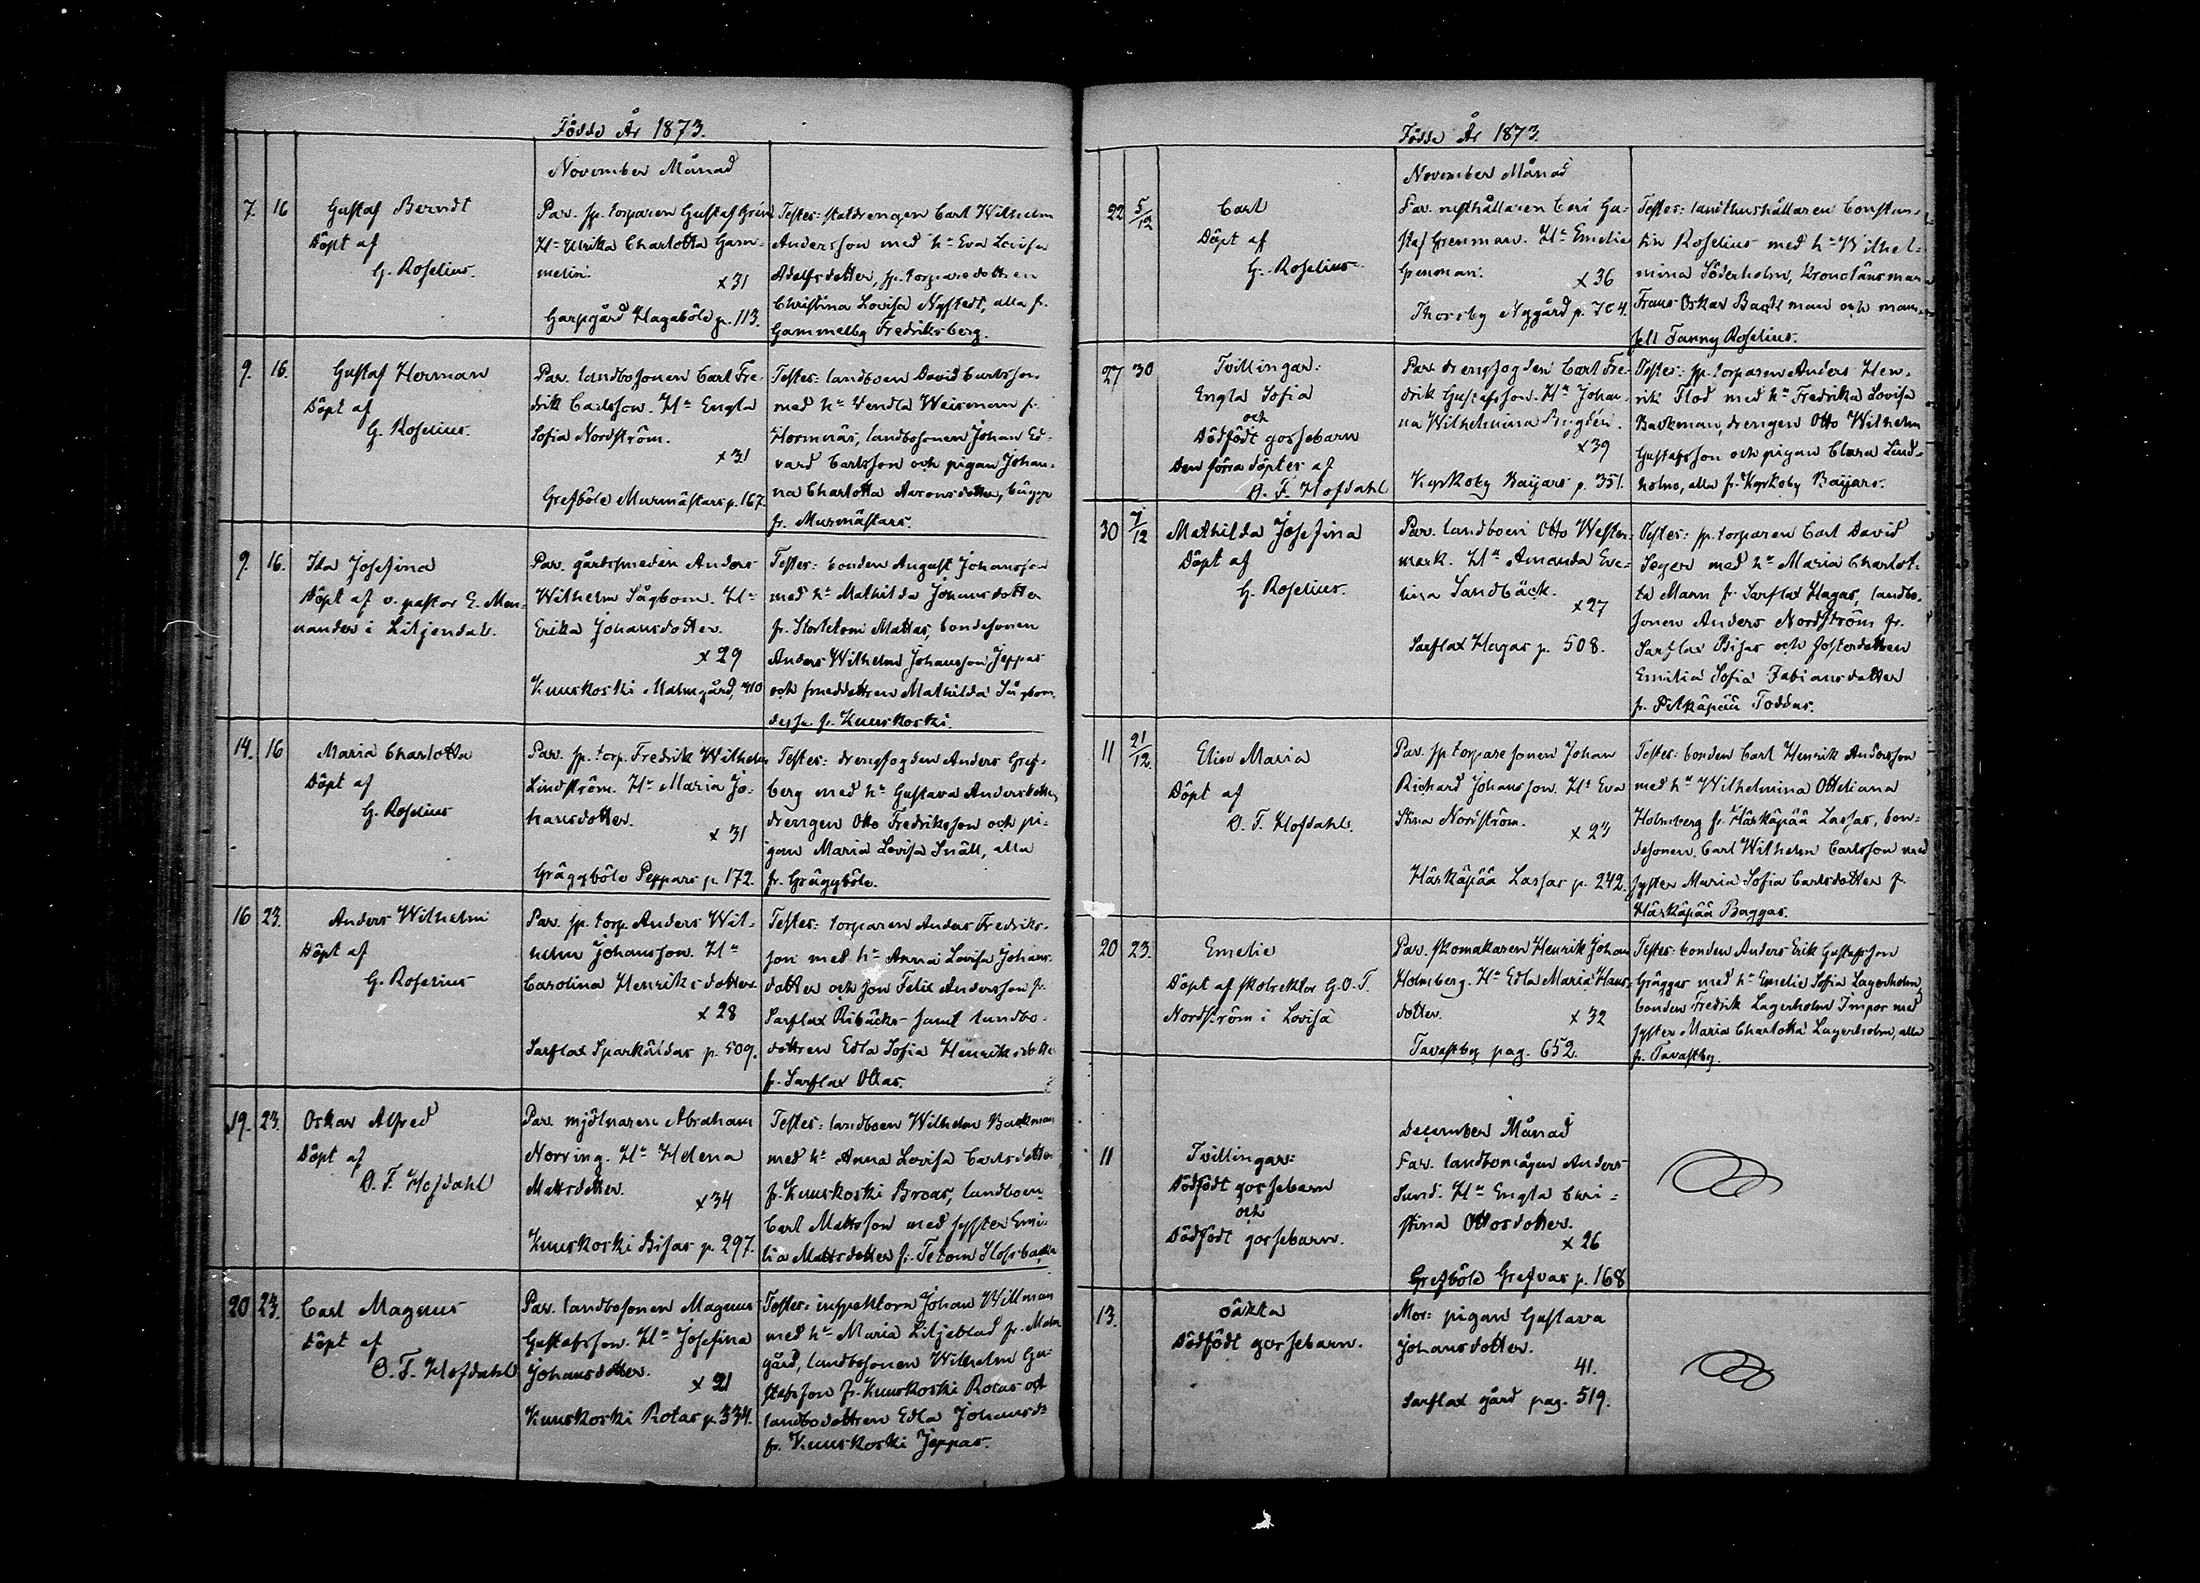 Födde År 1873.
November Månad
7. 16 Gustaf Berndt
Döpt af
G. Roselius.
Par. sp. torparen Gustaf Grön
H:a Ulrika Charlotta Gam-
melin.
x 31
Garpgård Hagaböle p. 113.
Testes: statdrengen Carl Wilhelm
Andersson med h:u Eva Lovisa
Adolfsdotter, sp. torparedottren
Christina Lovisa Nystedt, alla fr.
Gammelby Fredriksberg.
9. 16. Gustaf Herman
Döpt af
G. Roselius.
Par. landbosonen Carl Fre-
drik Carlsson. H:u Engla
Sofia Nordström.
x 31
Grefböle Murmästars p. 167.
Testes: landboen David Carlsson
med h:u Vendla Weisman fr.
Hormnäs, landbosonen Johan Ed-
vard Carlsson och pigan Johan-
na Charlotta Aaronsdotter, bägge
fr. Murmästars.
9. 16. Ida Josefina
Döpt af v. pastor E. Men-
nander i Liljendal.
Par. gårdssmeden Anders
Wilhelm Sågbom. H:u
Erika Johansdotter.
x 29
Kuuskoski Malmgård, 310
Testes: bonden August Johansson
med h:u Mathilda Johansdotter
fr. Stortetom Mattas, bondesonen
Anders Wilhelm Johansson Jeppas
och smeddottren Mathilda Sågbom,
desse fr. Kuuskoski.
14. 16 Maria Charlotta
Döpt af
G. Roselius
Par. sp. torp. Fredrik Wilhelm
Lindström. H:u Maria Jo-
hansdotter.
x 31
Gräggböle Peppars p. 172.
Testes: drengfogden Anders Gref-
berg med h:u Gustava Andersdotter,
drengen Otto Fredriksson och pi-
gan Maria Lovisa Snäll, alla
fr. Gräggböle.
16 23. Anders Wilhelm
Döpt af
G. Roselius
Par. sp. torp. Anders Wil-
helm Johansson. H:u
Carolina Henriksdotter.
x 28
Sarflax Sparkäldas p. 509.
Testes: torparen Anders Fredriks-
son med h:u Anna Lovisa Johans-
dotter och son Felix Andersson fr.
Sarflax Ribäcks samt landbo-
dottren Edla Sofia Henriksdotter
fr. Sarflax Ollas.
19. 23. Oskar Alfred
Döpt af
O. F. Hofdahl
Par. mjölnaren Abraham
Norring. H:u Helena
Mattsdotter.
x 34
Kuuskoski Bisas p. 297.
Testes: landboen Wilhelm Backman
med h:u Anna Lovisa Carlsdotter
fr. Kuuskoski Broas, landboen
Carl Mattsson med syster Emi-
lia Mattsdotter fr. Tetom Slofsbacka,
20 23. Carl Magnus
Döpt af
O. F. Hofdahl
Par. landbosonen Magnus
Gustafsson. H:u Josefina
Johansdotter.
x 21
Kuuskoski Rotas p. 334.
Testes: inspektorn Johan Willman
med h:u Maria Liljeblad fr. Malm
gård, landbosonen Wilhelm Gu-
stafsson fr. Kuuskoski Rotas och
landbodottren Edla Johansd:r
fr. Kuuskoski Jeppas.
Födde År 1873.
November Månad
22 5/12 Carl
Döpt af
G. Roselius
Par. rusthållaren Carl Gu-
staf Grenman. H:u Emelie
Grenman.
x 36
Thorsby Nygård p. 704.
Testes: landthushållaren Constan-
tin Roselius med h:u Wilhel-
mina Söderholm, Kronolänsman
Frans Oskar Backman och mam-
sell Fanny Roselius.
27 30 Tvillingar:
Engla Sofia
och
Dödfödt gossebarn
Den förra döptes af
O. F. Hofdahl
Par. drengfogden Carl Fre-
drik Gustafsson. H:u Johan-
na Wilhelmina Bygden.
x 39
Kyrkoby Baijars p. 351.
Testes: sp. torparen Anders Hen-
rik Flod med h:u Fredrika Lovisa
Backman, drengen Otto Wilhelm
Gustafsson och pigan Clara Lind-
holm, alla fr. Kyrkoby Baijars.
30 7/12 Mathilda Josefina
Döpt af
G. Roselius.
Par. landboen Otto Wester-
mark. H:u Amanda Eve-
lina Sandbäck.
x 27
Sarflax Hagas p. 508.
Testes: sp. torparen Carl David
Seger med h:u Maria Charlot-
ta Mann fr. Sarflax Hagas, landbo-
sonen Anders Nordström fr.
Sarflax Bisas och fosterdottren
Emilia Sofia Fabiansdotter
fr. Pitkäpää Toddas.
11 21/12. Elin Maria
Döpt af
O. F. Hofdahl.
Par. sp torparesonen Johan
Richard Johansson. H:u Eva
Stina Nordström.
x 23
Härkäpää Lassas p. 242.
Testes: bonden Carl Henrik Andersson
med h:u Wilhelmina Ottiliana
Holmberg fr. Härkäpää Lassas, bon-
desonen Carl Wilhelm Carlsson med
syster Maria Sofia Carlsdotter fr.
Härkäpää Baggas.
20 23. Emelie
Döpt af skolrektor G. O. F.
Nordström i Lovisa
Par. skomakaren Henrik Johan
Holmberg. H:u Edla Maria Hans-
dotter.
x 32
Tavastby pag. 652.
Testes: bonden Anders Erik Gustafsson
Gräggas med h:u Emelie Sofia Lagerholm,
bonden Fredrik Lagerholm Impos med
syster Maria Charlotta Lagerholm, alla
fr. Tavastby.
December Månad
11 Tvillingar:
Dödfödt gossebarn
och
Dödfödt gossebarn.
Par. landbomågen Anders
Sund. H:u Engla Chri-
stina Ottosdotter.
x 26
Grefböle Grefvas p. 168
13. Oäkta
Dödfödt gossebarn.
Mor: pigan Gustava
Johansdotter.
41.
Sarflax gård pag. 519.